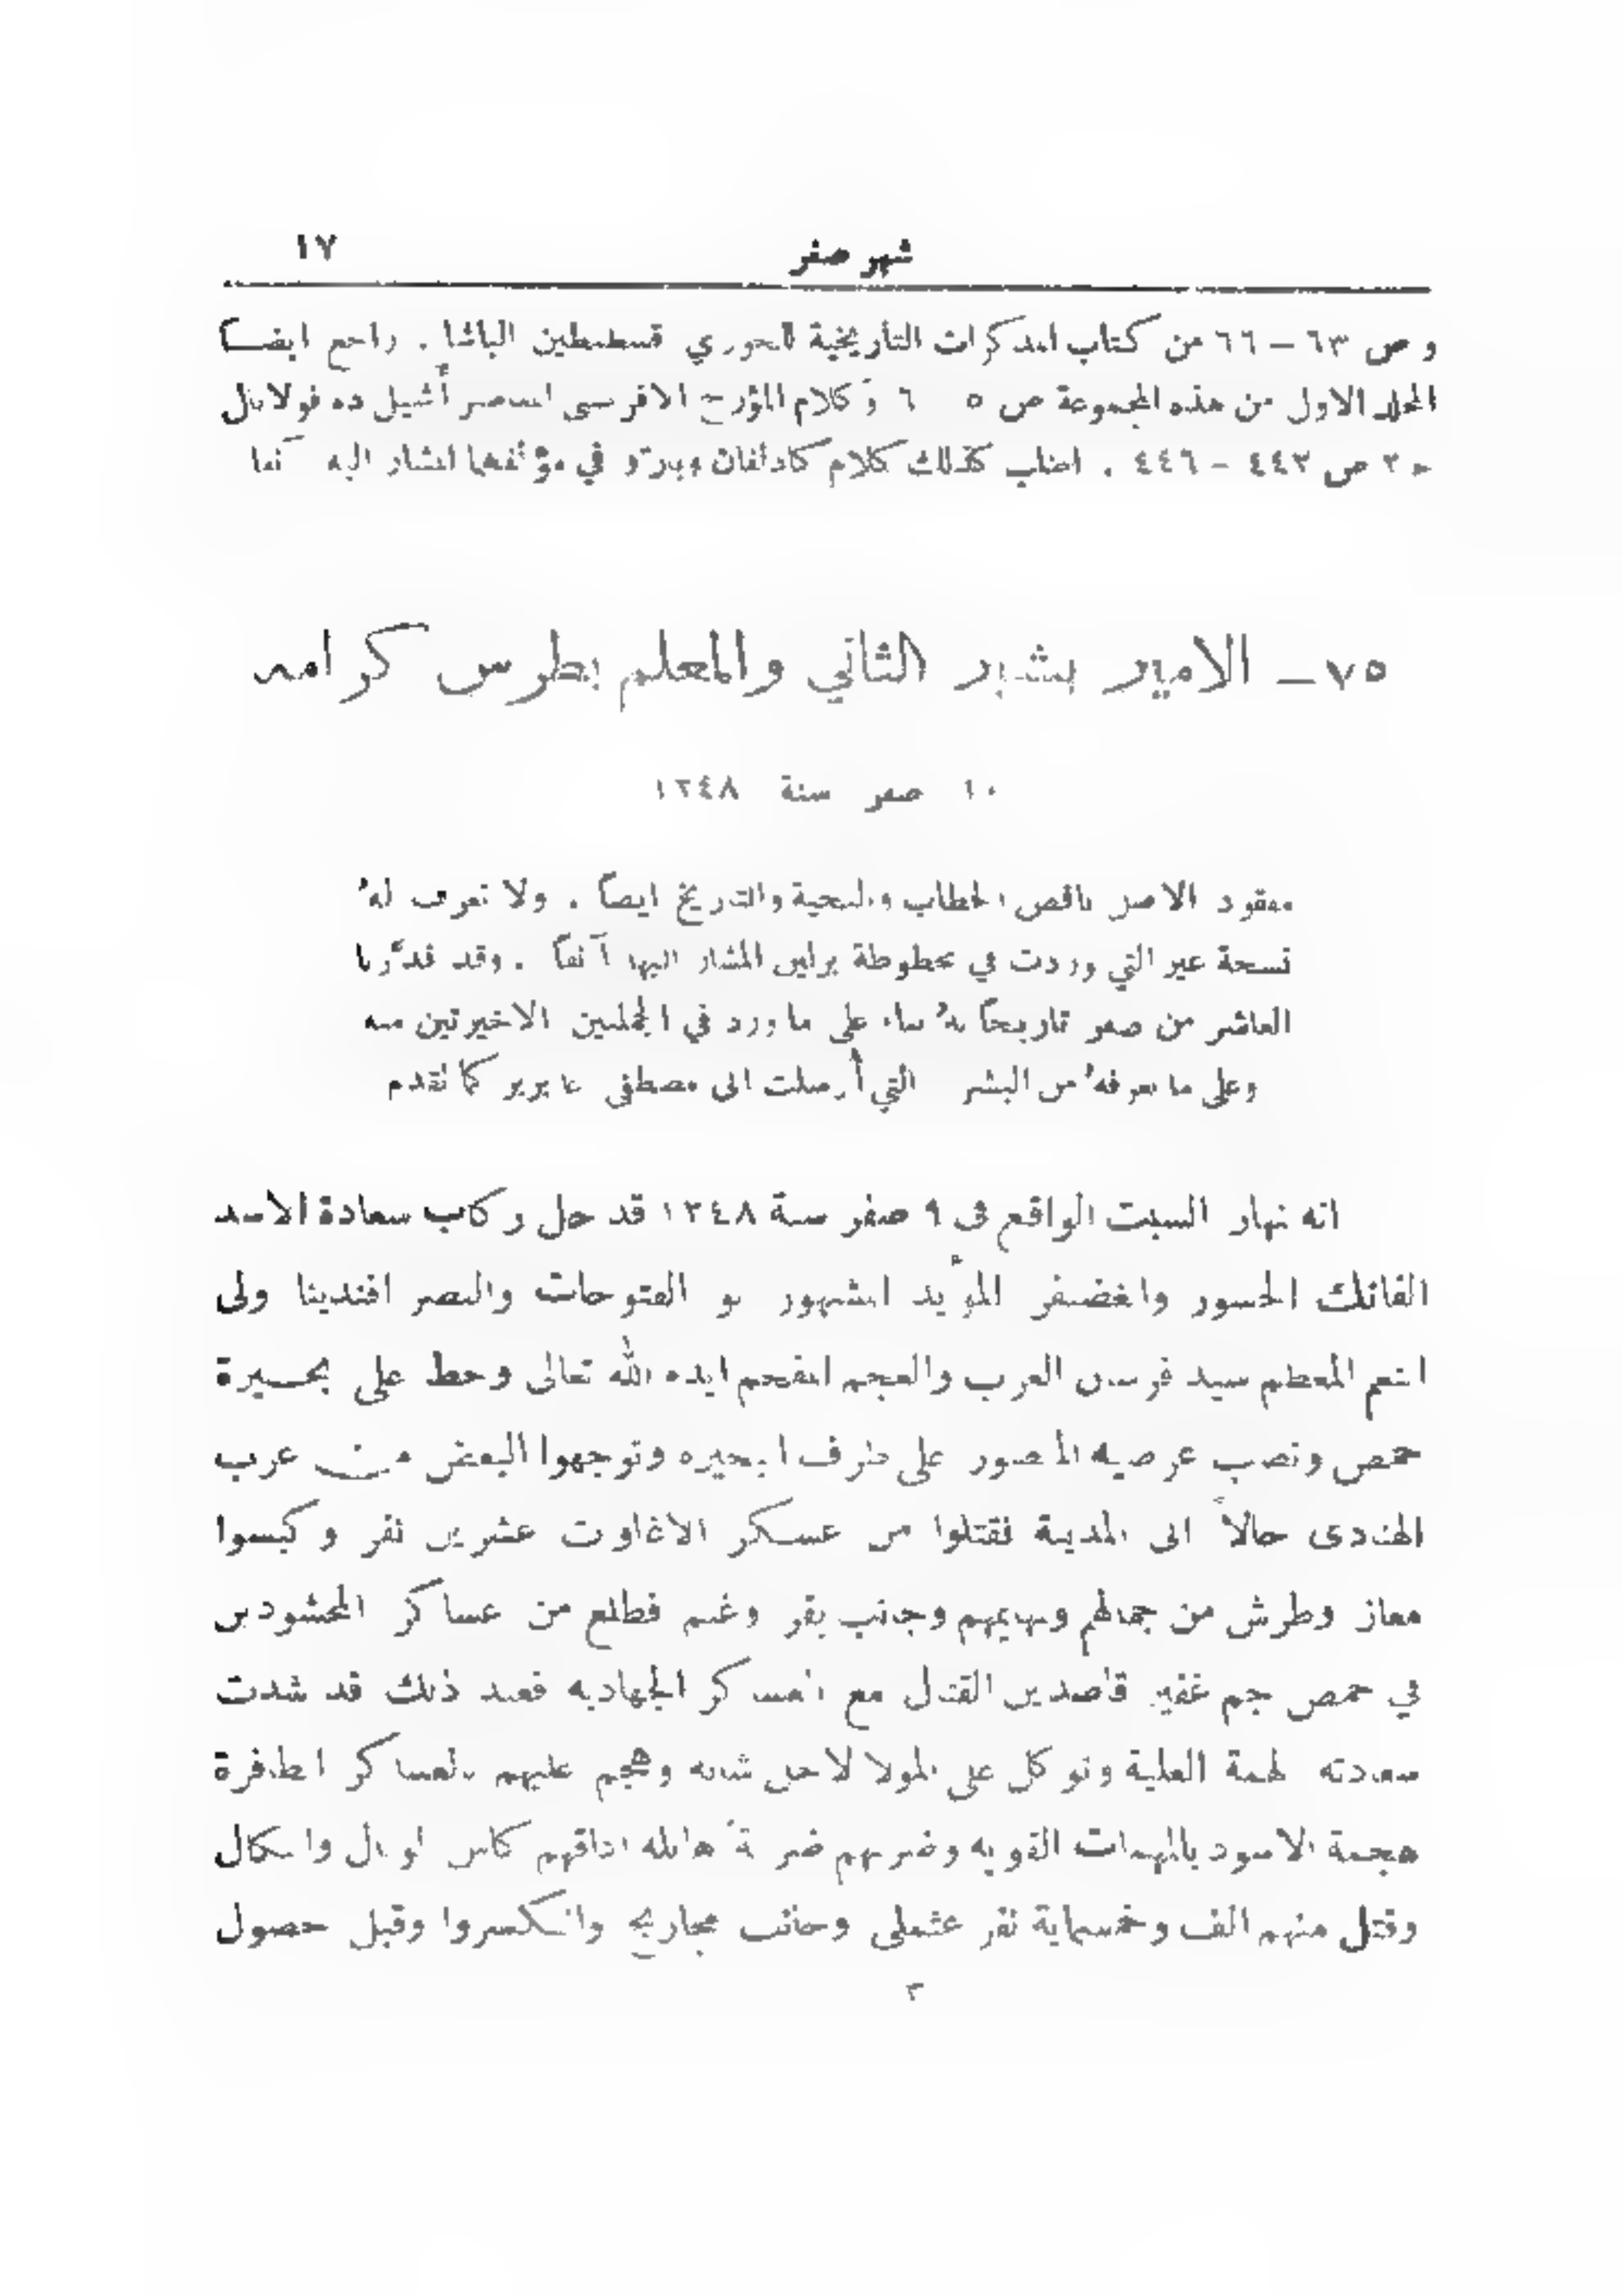 شهر صفر
١٧
و ص ٦٣ – ٦٦ من كتاب المذكرات التأريخية للخوري قسطنطين الباشا . راجع ايضاً
المجلد الاول من هذه المجموعة ص ٥ ٦ وكلام المؤرخ الافرنسي المعاصر أشيل ده فولابل
ج ٢ ص ٤٤٣ – ٤٤٦ . كذلك كلام كادلفان وبارّو في مؤلفهما المشار اليه آنفا
٧٥ – الامير بشير الثاني والمعلم بطرس كرامه
١٠ صفر سنة ١٢٤٨
مفقود الاصل ناقص الخطاب والتحية والتاريخ ايضاً . ولا نعرف لهُ
نسخة غير التي وردت في مخطوطة برلين المشار اليها آنفاً . وقد قدَّرنا
العاشر من صفر تاريخاً لهُ بناء على ما ورد في الجملتين الاخيرتين منه
وعلى ما نعرفهُ من البشر التي أُرسلت الى مصطفى بربر كما تقدم
انه نهار السبت الواقع فى ٩ صفر سنة ١٢٤٨ قد حل ركاب سعادة الاسد
الفاتك الجسور والغضنفر المؤيد المشهور بو الفتوحات والنصر افندينا ولى
النعم المعظم سيد فرسان العرب والعجم المفخم ايده الله تعالى وحط على بحيرة
حمص ونصب عرضيه المنصور على طرف البحيره وتوجهوا البعض من عرب
الهنادى حالاً الى المدينة فقتلوا من عسكر الارناوت عشرين نفر وكبسوا
معاز وطرش من جمالهم وبهايمهم وجانب بقر وغنم فطلع من عساكر المحشودين
في حمص جم غفير قاصدين القتال مع العساكر الجهاديه فعند ذلك قد شدت
سعادته الهمة العلية وتوكل على المولا لاجل شانه وهجم عليهم بالعساكر الظافرة
هجمة الاسود بالهمات القويه وضربهم ضربةً هايله اذاقهم كاس الوبال والنكال
وقتل منهم الف وخمسماية نفر عثملى وجانب مجاريح وانكسروا وقبل حصول
٣